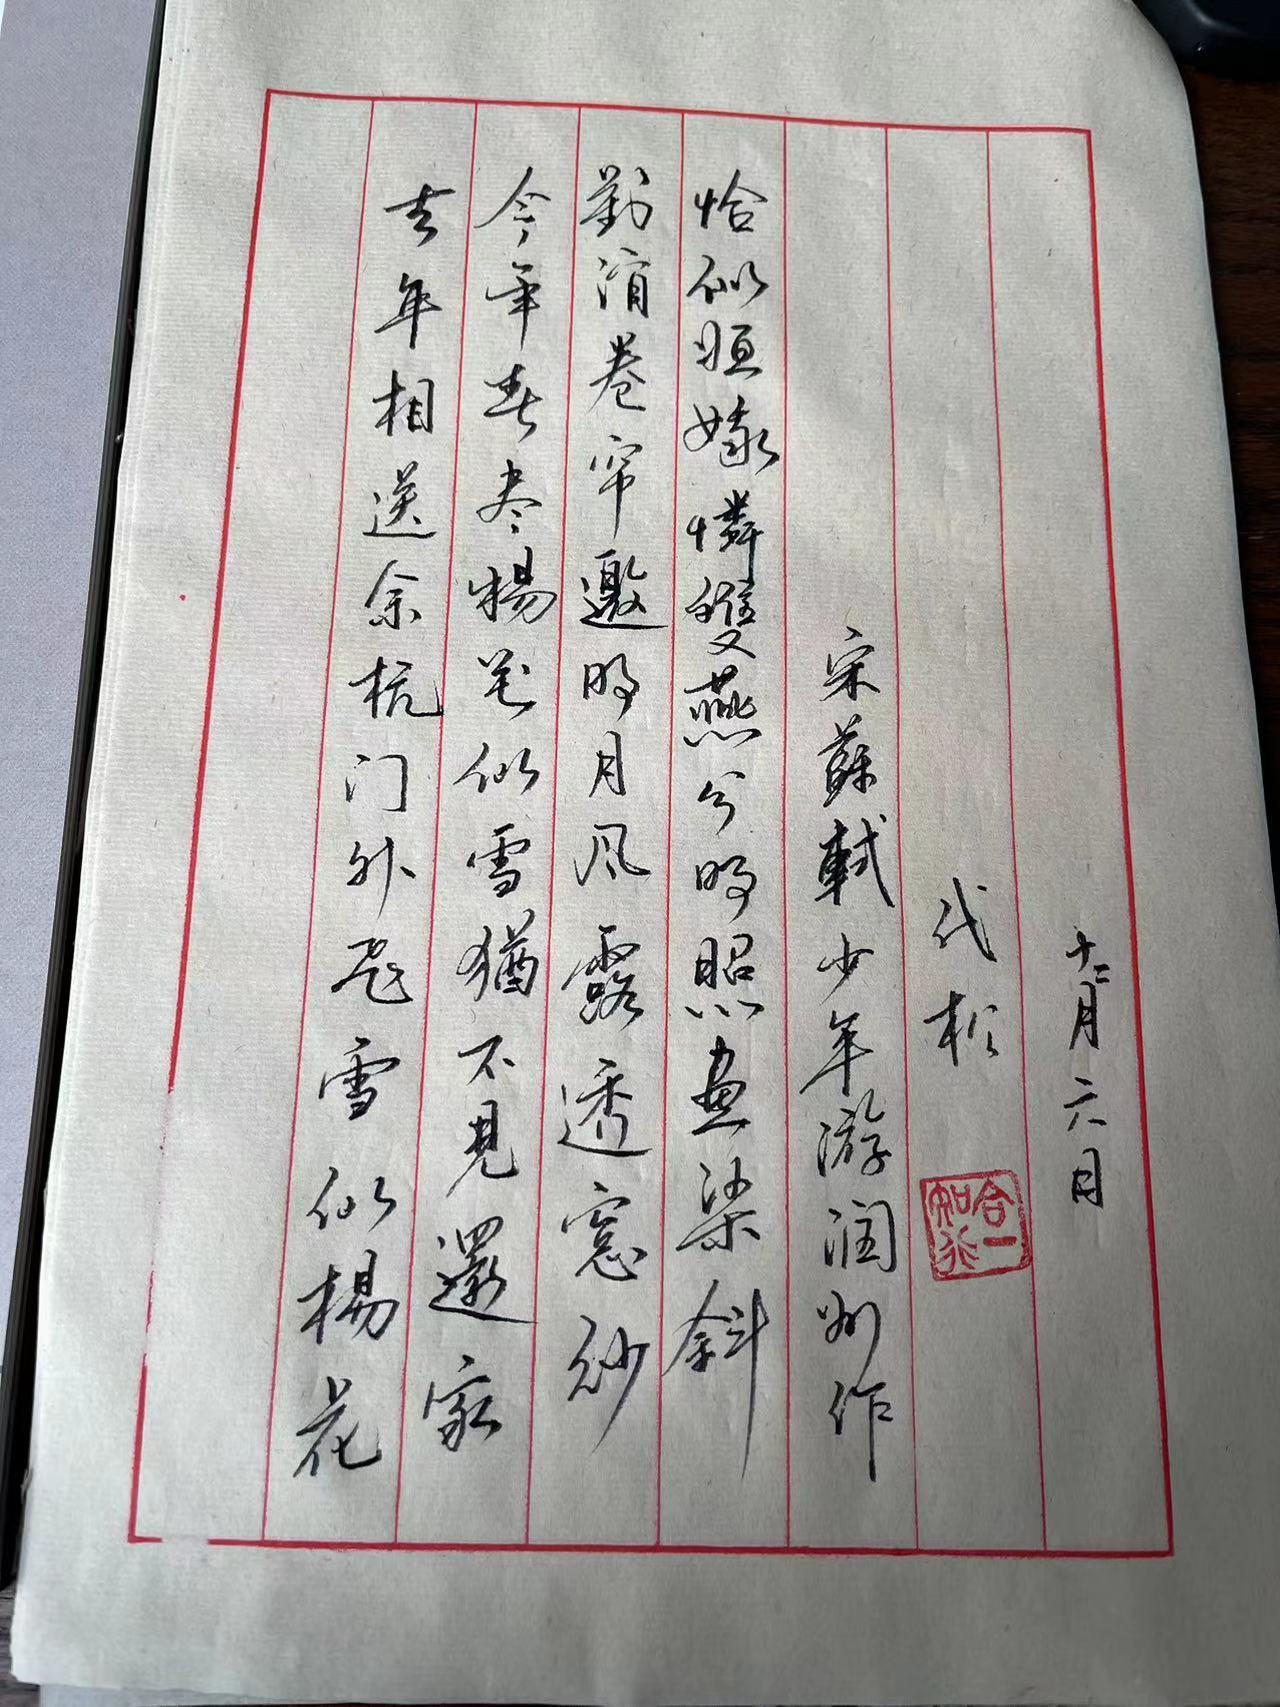 去年相送余杭门外飞雪似楊花
今年春尽楊花似雪猶不見還家
對酒卷帘邀明月风露透窓紗
恰似姮娥憐雙燕分明照畫梁斜
宋蘇軾少年游润州作
代
知行合一
十二月六日